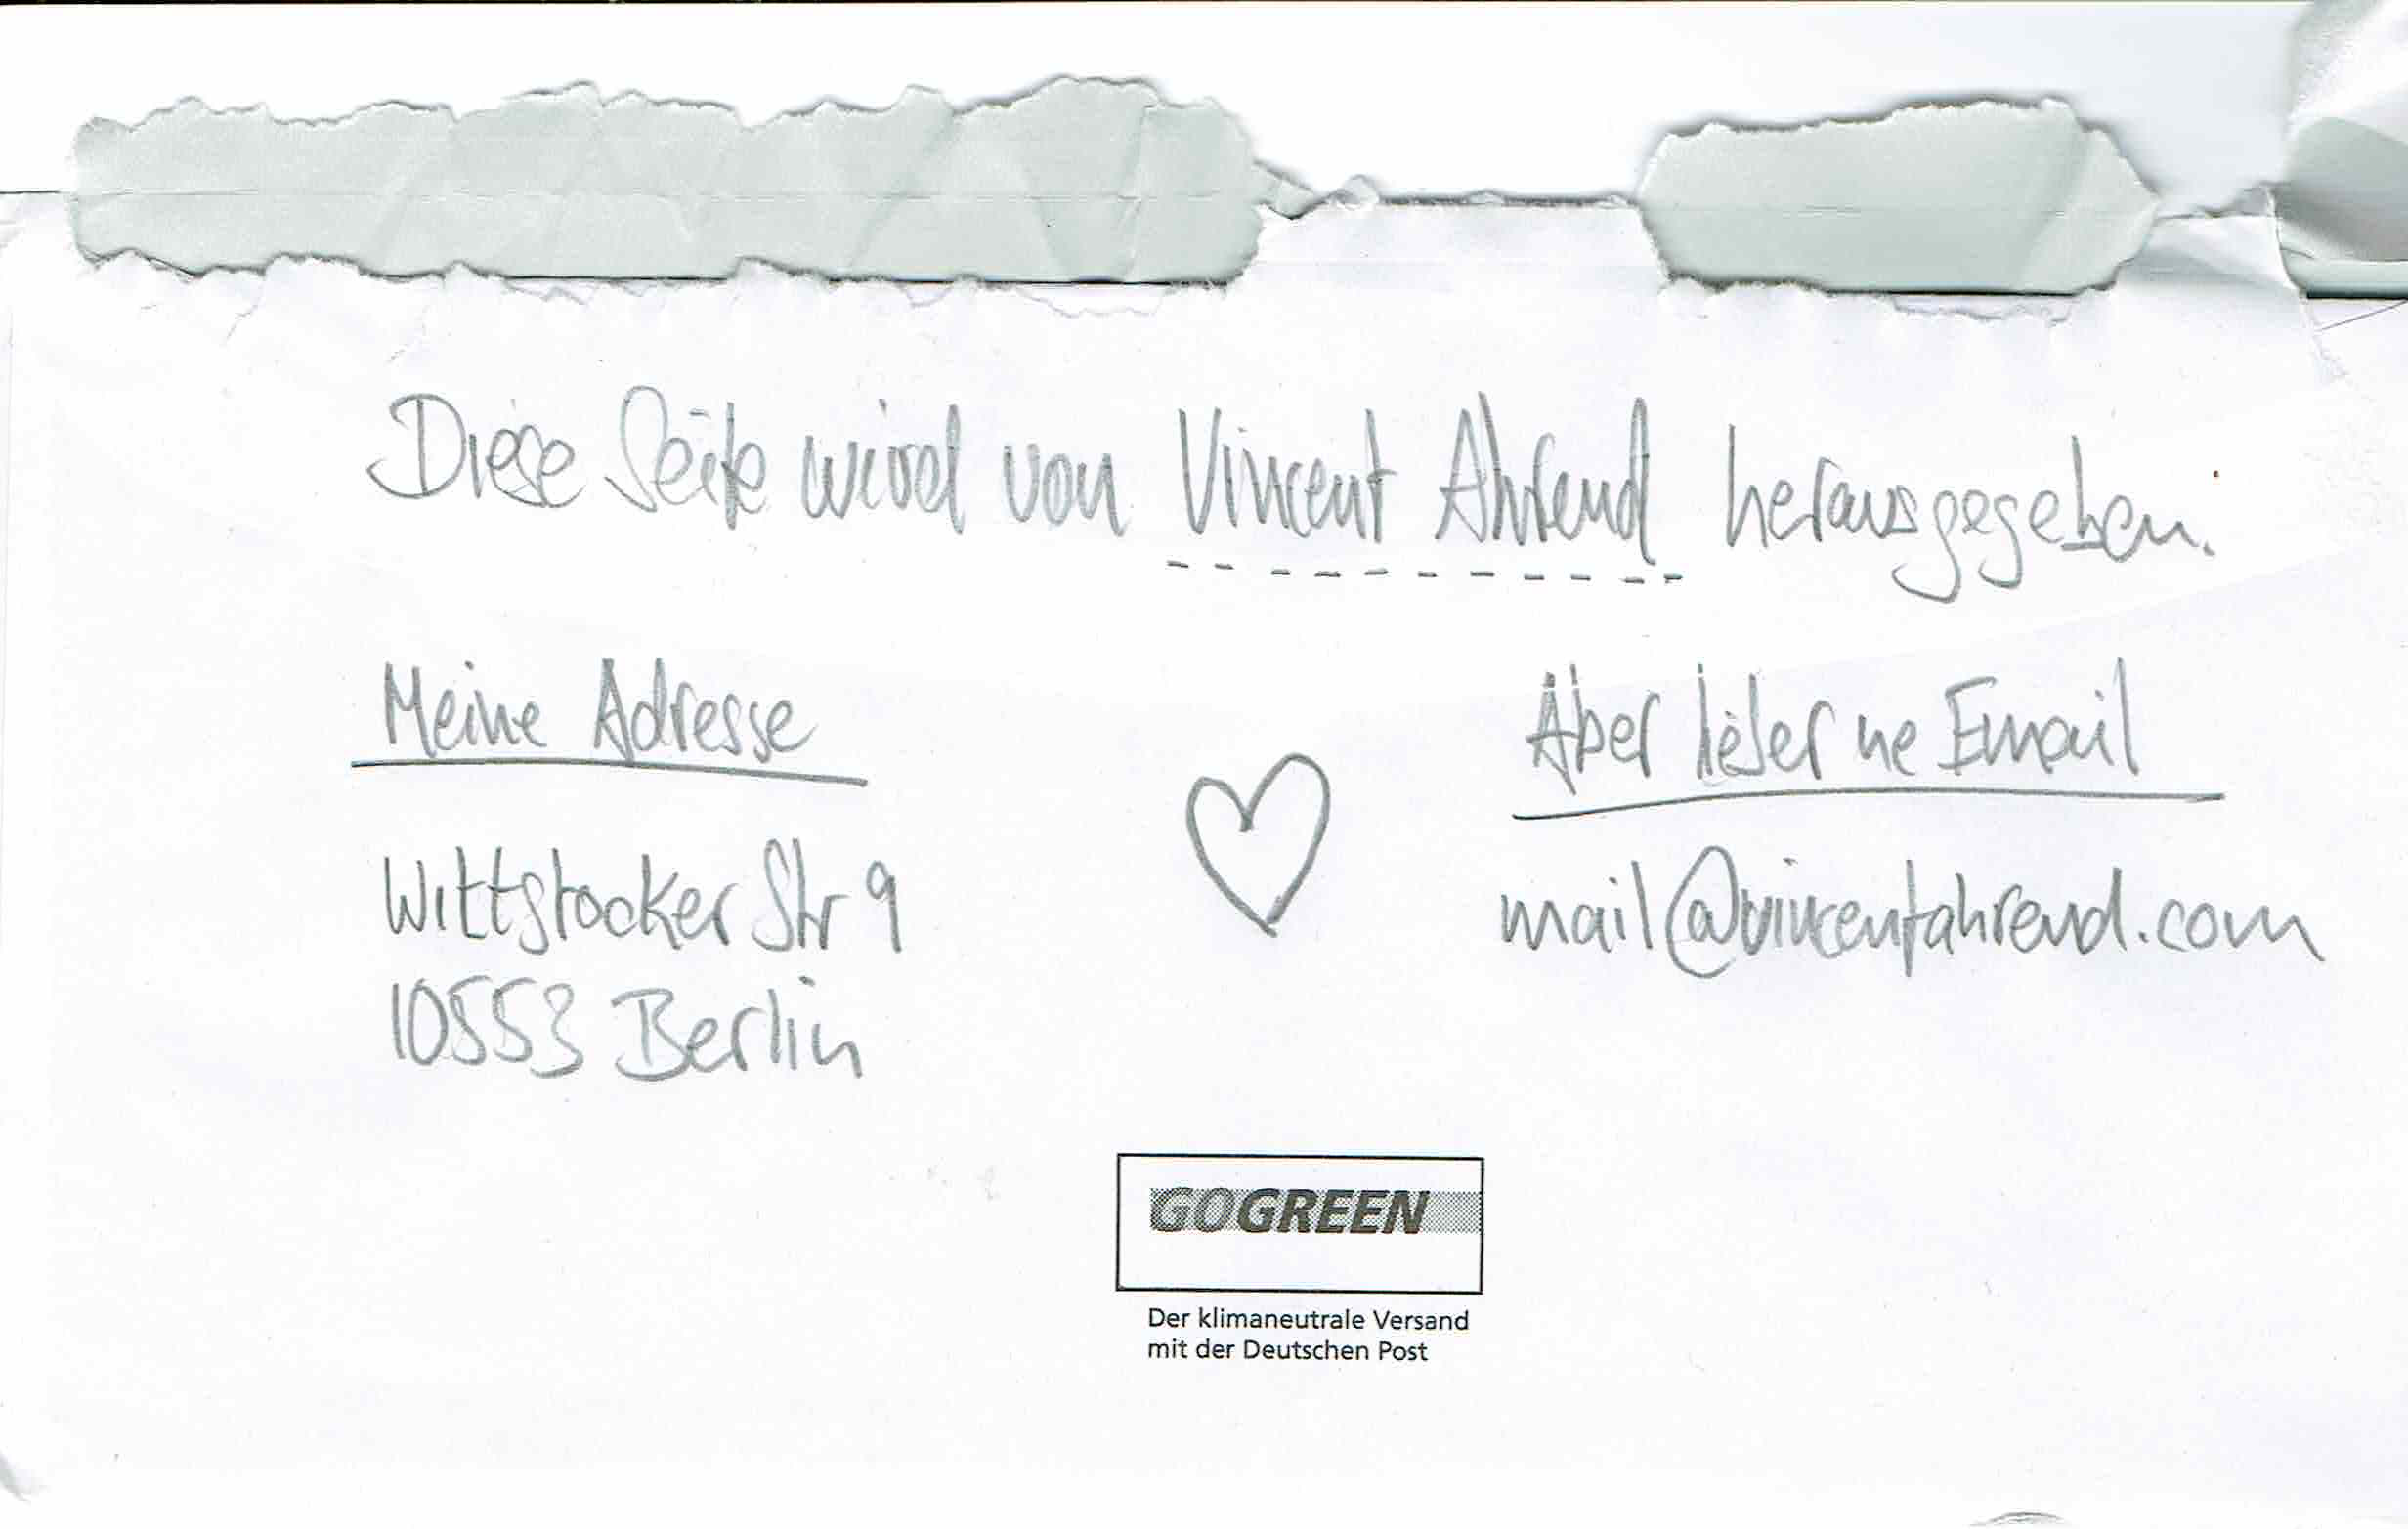 Diese Seite wird von Vincent Ahrend herausgegeben.
Meine Adresse
Wittstocker Str 9
10553 Berlin
Aber lieber ne Email
mail@vincentahrend.com
GOGREEN
Der klimaneutrale Versand
mit der Deutschen Post